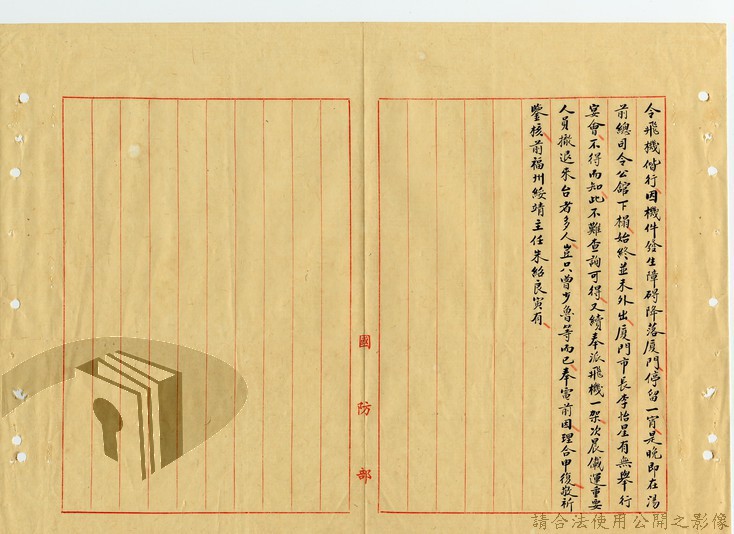 令飛機偕行因機件發生障碍降落廈門停留一宵是晚即在湯
前總司令公舘下榻始終並未外出廈門市長李怡星有無舉行
宴會不得而知此不難查詢可得又續奉派飛機一架次晨儎運重要
人員撤退來台者多人豈只曾少魯等而已奉電前因理合申復敬祈
鑒核前福州綏靖主任朱紹良寅有
國防部
請合法使用公開之影像